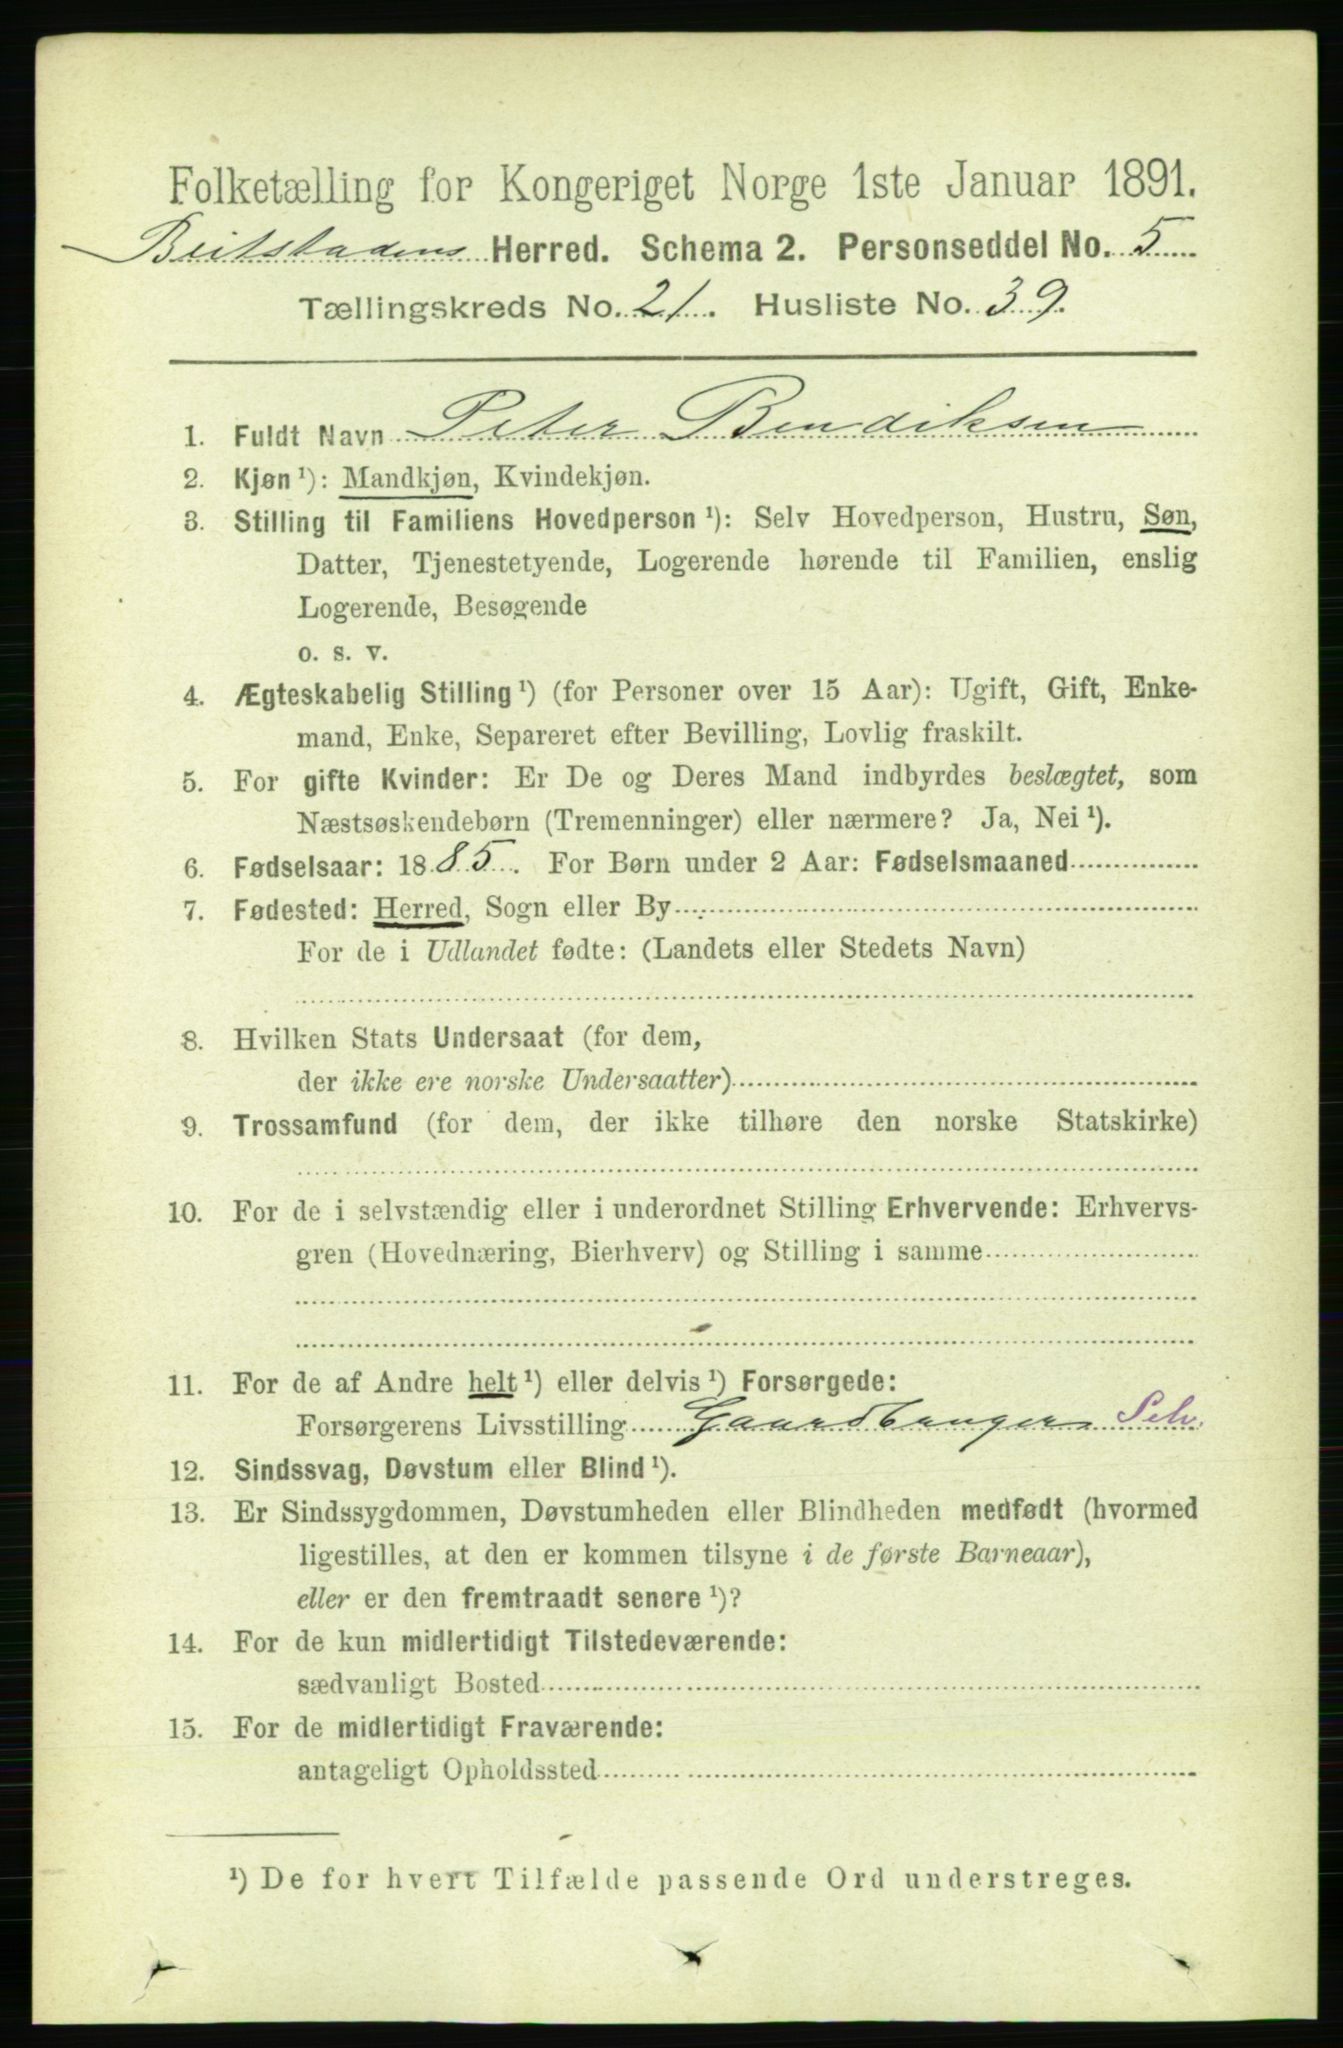 Folketælling for Kongeriget Norge 1ste Januar 1891.
Beitstadens Herred. Schema 2. Personseddel No. 5
Tællingskreds No. 21. Husliste No. 39.
1. Fuldt Navn Peter Bendiksen
2. Kjøn ¹): Mandkjøn, Kvindekjøn.
3. Stilling til Familiens Hovedperson ¹): Selv Hovedperson, Hustru, Søn,
Datter, Tjenestetyende, Logerende hørende til Familien, enslig
Logerende, Besøgende
o. s. v.
4. Ægteskabelig Stilling ¹) (for Personer over 15 Aar): Ugift, Gift, Enke-
mand, Enke, Separeret efter Bevilling, Lovlig fraskilt.
5. For gifte Kvinder: Er De og Deres Mand indbyrdes beslægtet, som
Næstsøskendebørn (Tremenninger) eller nærmere? Ja, Nei ¹).
6. Fødselsaar: 1885. For Børn under 2 Aar: Fødselsmaaned
7. Fødested: Herred, Sogn eller By
For de i Udlandet fødte: (Landets eller Stedets Navn)
8. Hvilken Stats Undersaat (for dem,
der ikke ere norske Undersaatter)
9. Trossamfund (for dem, der ikke tilhøre den norske Statskirke)
10. For de i selvstændig eller i underordnet Stilling Erhvervende: Erhvervs-
gren (Hovednæring, Bierhverv) og Stilling i samme
11. For de af Andre helt ¹) eller delvis ¹) Forsørgede:
Forsørgerens Livsstilling Gaardbruger Selv.
12. Sindssvag, Døvstum eller Blind ¹).
13. Er Sindssygdommen, Døvstumheden eller Blindheden medfødt (hvormed
ligestilles, at den er kommen tilsyne i de første Barneaar),
eller er den fremtraadt senere ¹)?
14. For de kun midlertidigt Tilstedeværende:
sædvanligt Bosted
15. For de midlertidigt Fraværende:
antageligt Opholdssted
¹) De for hvert Tilfælde passende Ord understreges.